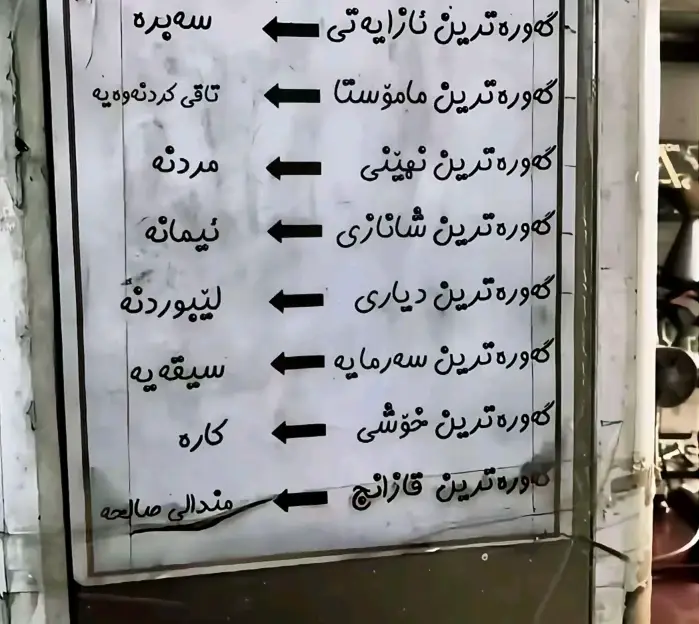 گەورەترین ئازایەتی ← سەبرە
گەورەترین مامۆستا ← تاقی کردنەوەیە
گەورەترین نهێنی ← مردنە
گەورەترین شانازی ← ئیمانە
گەورەترین دیاری ← لێبوردنە
گەورەترین سەرمایە ← سیقەیە
گەورەترین خۆشی ← کارە
گەورەترین قازانج ← مندالی صالحە